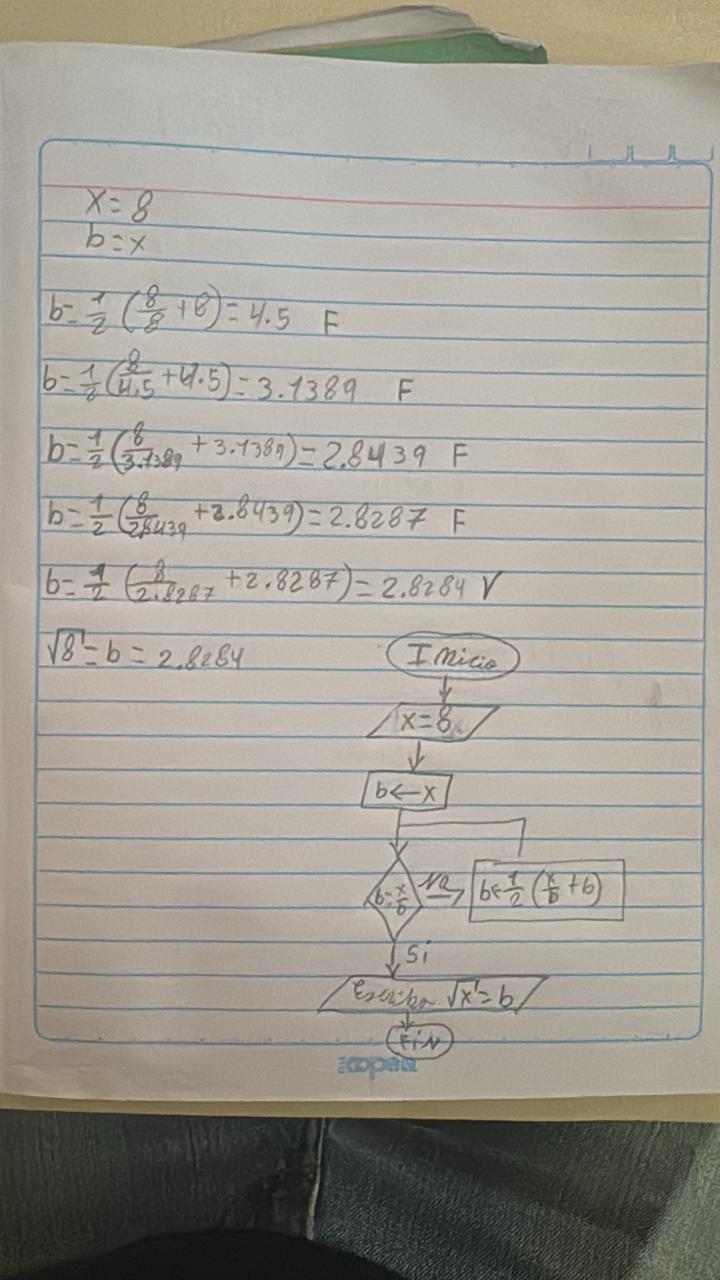 x=8
b=x
b=1/2 (8/8 +8)=4.5 F
b=1/2(8/4.5 +4.5)=3.1389 F
b=1/2(8/3.1389 +3.1389)=2.8439 F
b=1/2(8/2.8439 +2.8439)=2.8287 F
b=1/2 (8/2.8287 +2.8287)=2.8284 V
√8=b=2.8284
Inicio
x=8
b←x
b=x/b
NO
b←1/2(x/b +b)
Si
Escriba √x=b
FiN